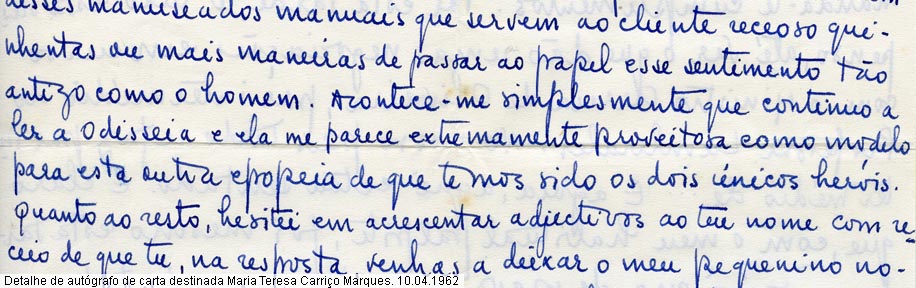 desses manuseados manuais que servem ao cliente receoso qui-
nhentas ou mais maneiras de passar ao papel esse sentimento tão
antigo como o homem. Acontece-me simplesmente que continuo a
ler a Odisseia e ela me parece extremamente proveitosa como modelo
para esta outra epopeia de que temos sido os dois únicos heróis.
Quanto ao resto, hesitei em acrescentar adjectivos ao teu nome com re-
ceio de que tu, na resposta, venhas a deixar o meu pequenino no-
Detalhe de autógrafo de carta destinada Maria Teresa Carriço Marques. 10.04.1962